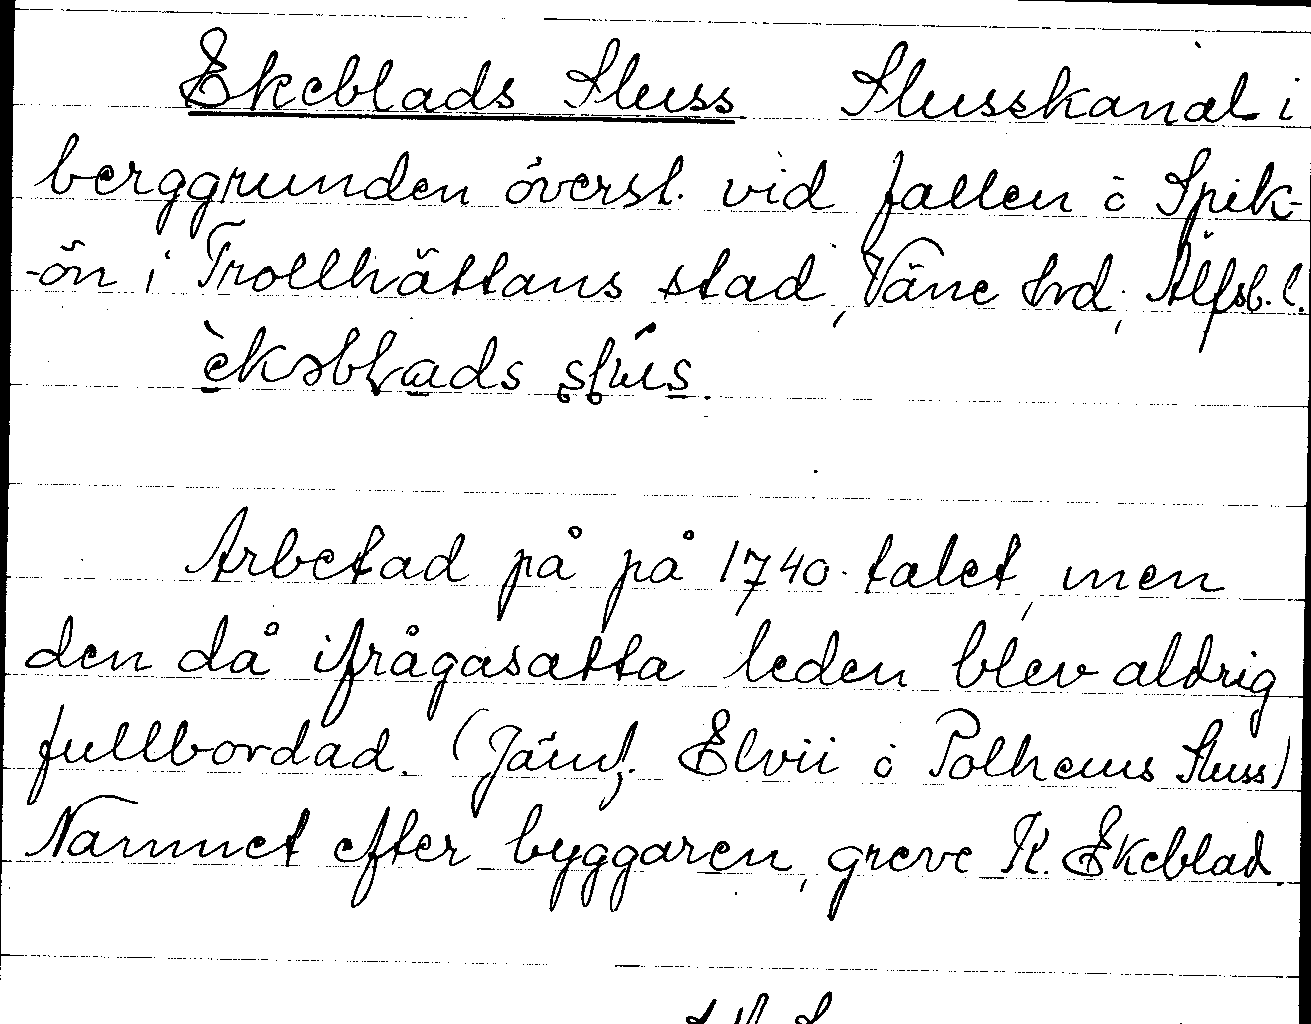 Ekeblads Sluss Slusskanal i
berggrunden överst. vid fallen å Spik-
-ön i Trollhättans stad, Väne hrd, Älfsb. l.
èkəblads slús.
Arbetad på på 1740-talet, men
den då ifrågasatta leden blev aldrig
fullbordad. (Jämf. Elvii o Polhems Sluss)
Namnet efter byggaren, greve K. Ekeblad.